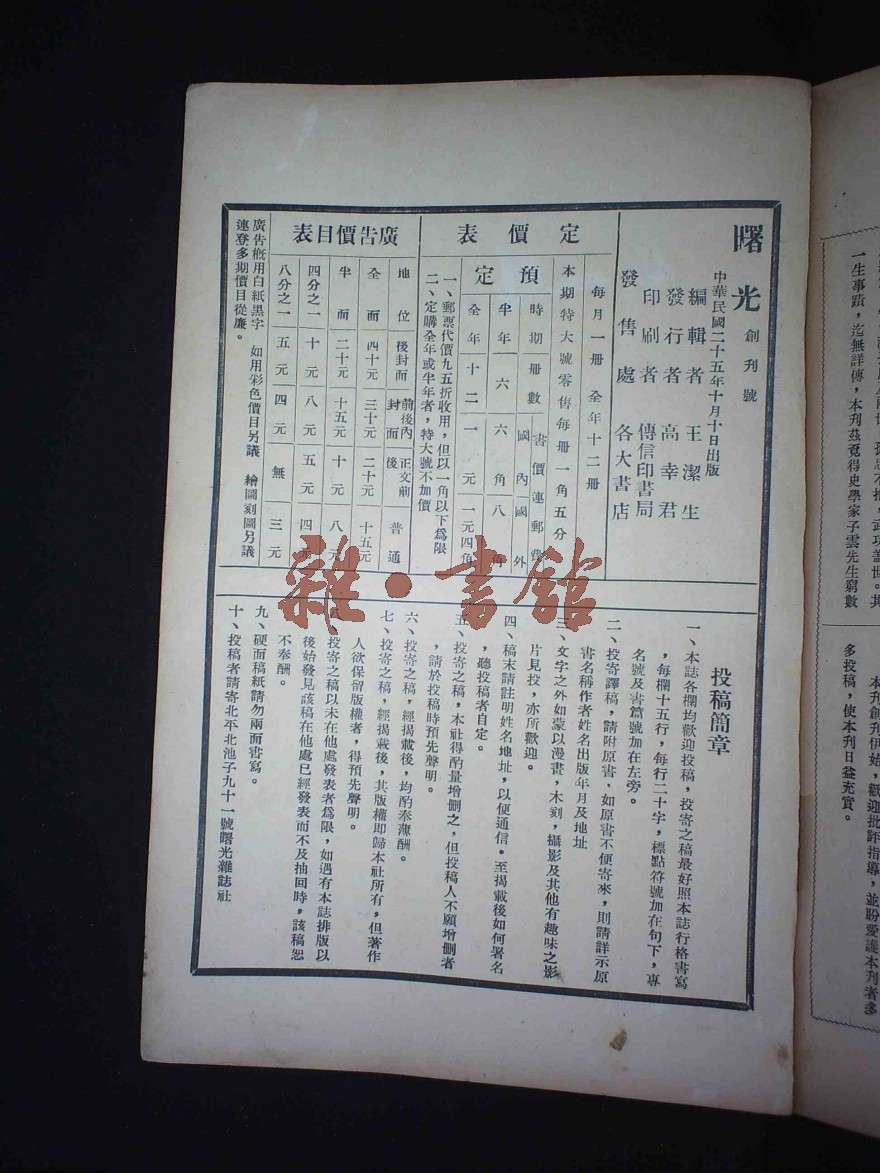 曙光 創刊號
中華民國二十五年十月十日出版
編輯者 王潔生
發行者 高幸君
印刷者 傳信印書局
發售處 各大書店
定價表
每月一冊 全年十二冊
本期特大號零售每冊一角五分
預定
時期 冊數 書價連郵費 國內 國外
半年 六 六角 八角
全年 十二 一元 一元四角
一、郵票代價九五折收用，但以一角以下為限
二、定購全年或半年者，特大號不加價
廣告價目表
地位 後封面 前後內封面 正文前後 普通
全面 四十元 三十元 二十元 十五元
半面 二十元 十五元 十元 八元
四分之一 十元 八元 五元 四元
八分之一 五元 四元 無 三元
廣告概用白紙黑字 如用彩色價目另議 繪圖刻圖另議
連登多期價目從廉。
投稿簡章
一、本誌各欄均歡迎投稿，投寄之稿最好照本誌行格書寫
，每欄十五行，每行二十字，標點符號加在句下，專
名號及書篇號加在左旁。
二、投寄譯稿，請附原書，如原書不便寄來，則請詳示原
書名稱作者姓名出版年月及地址
三、文字之外如蒙以漫畫，木刻，攝影及其他有趣味之影
片見投，亦所歡迎。
四、稿末請註明姓名地址，以便通信．至揭載後如何署名
，聽投稿者自定。
五、投寄之稿，本社得酌量增刪之，但投稿人不願增刪者
，請於投稿時預先聲明。
六、投寄之稿，經揭載後，均酌奉薄酬。
七、投寄之稿，經揭載後，其版權即歸本社所有，但著作
人欲保留版權者，得預先聲明。
投寄之稿以未在他處發表者為限，如遇有本誌排版以
後始發見該稿在他處已經發表而不及抽回時，該稿恕
不奉酬。
九、硬面稿紙請勿兩面書寫。
十、投稿者請寄北平北池子九十一號曙光雜誌社
雜·書館
一生事蹟，迄無詳傳，本刊茲覓得史學家子雲先生窮數
本刊創刊伊始，歡迎批評指導，並盼愛護本刊者多
多投稿，使本刊日益充實。